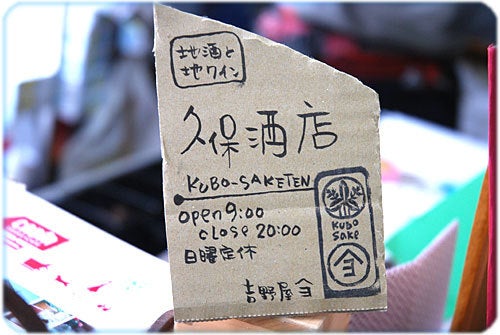 地酒と
地ワイン
久保酒店
KUBO-SAKETEN
open 9:00
close 20:00
日曜定休
KUBO
Sake
吉野屋